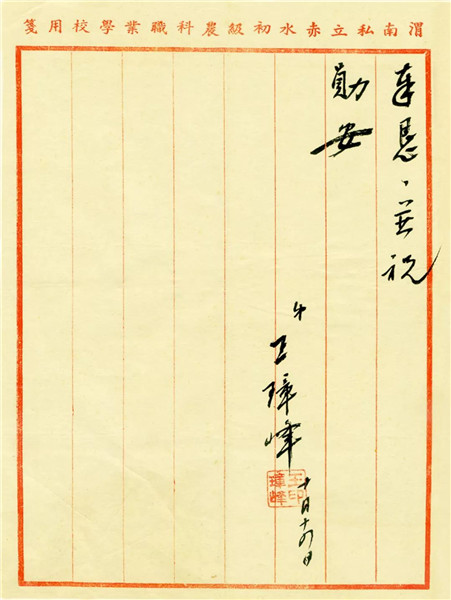 渭南私立赤水初級農科職業學校用箋
奉恳、並祝
勛安
弟 王璋峰
十月十六日
王印
璋峰